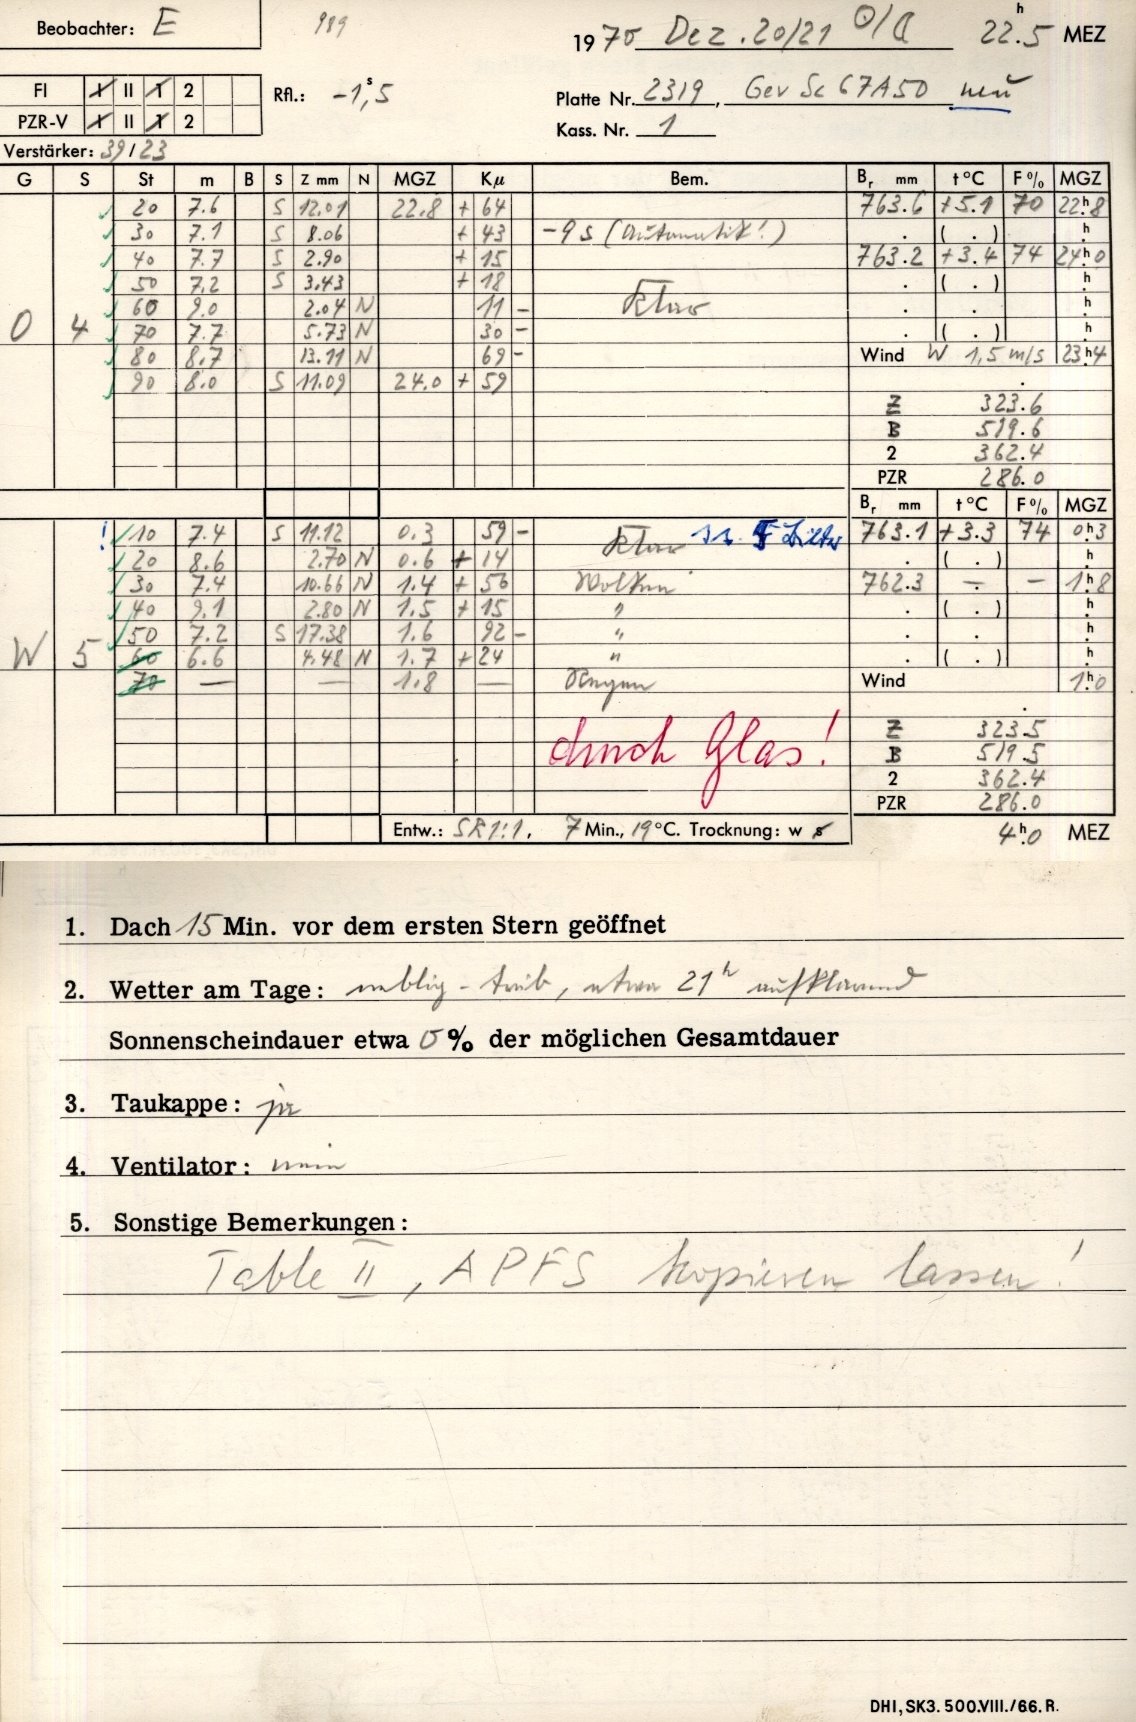 Beobachter: E 989 1970 Dez. 20/21 22.5 h MEZ
FI I II 1 2 Rfl.: -1,5 s Platte Nr. 2319, Gev Sc 67A50 neu
PZR-V I II 1 2 Kass. Nr. 1
Verstärker: 39/23
G S St m B S Z mm N MGZ Kμ Bem. Br mm t °C F % MGZ
20 7.6 S 12.01 22.8 + 64 763.6 +5.1 70 22h8
30 7.1 S 8.06 + 43 -9 s (Automatik!) . ( . ) h
40 7.7 S 2.90 + 15 763.2 +3.4 74 24h0
50 7.2 S 3.43 + 18 . ( . ) h
60 9.0 2.04 N 11 - Klar . . h
O 4 70 7.7 5.73 N 30 - . ( . ) h
80 8.7 13.11 N 69 - Wind W 1,5 m/s 23h4
90 8.0 S 11.09 24.0 + 59 .
Z 323.6
B 519.6
2 362.4
PZR 286.0
Br mm t °C F % MGZ
! 10 7.4 S 11.12 0.3 59 - Klar 763.1 +3.3 74 0h3
20 8.6 2.70 N 0.6 + 14 . ( . ) h
30 7.4 10.66 N 1.4 + 56 Wolken 762.3 - - 1h8
40 9.1 2.80 N 1.5 + 15 " . ( . ) h
50 7.2 S 17.38 1.6 92 - " . . h
W 5 60 6.6 4.48 N 1.7 + 24 " . ( . ) h
70 — — 1.8 — Regen Wind 1h0
durch Glas!
Z 323.5
B 519.5
2 362.4
PZR 286.0
Entw.: SR 1:1, 7 Min., 19 °C. Trocknung: w s 4h0 MEZ
1. Dach 15 Min. vor dem ersten Stern geöffnet
2. Wetter am Tage: neblig - trüb, etwa 21h aufklarend
Sonnenscheindauer etwa 0 % der möglichen Gesamtdauer
3. Taukappe: ja
4. Ventilator: nein
5. Sonstige Bemerkungen:
Table II, APFS kopieren lassen!
DHI, SK3. 500.VIII./66. R.